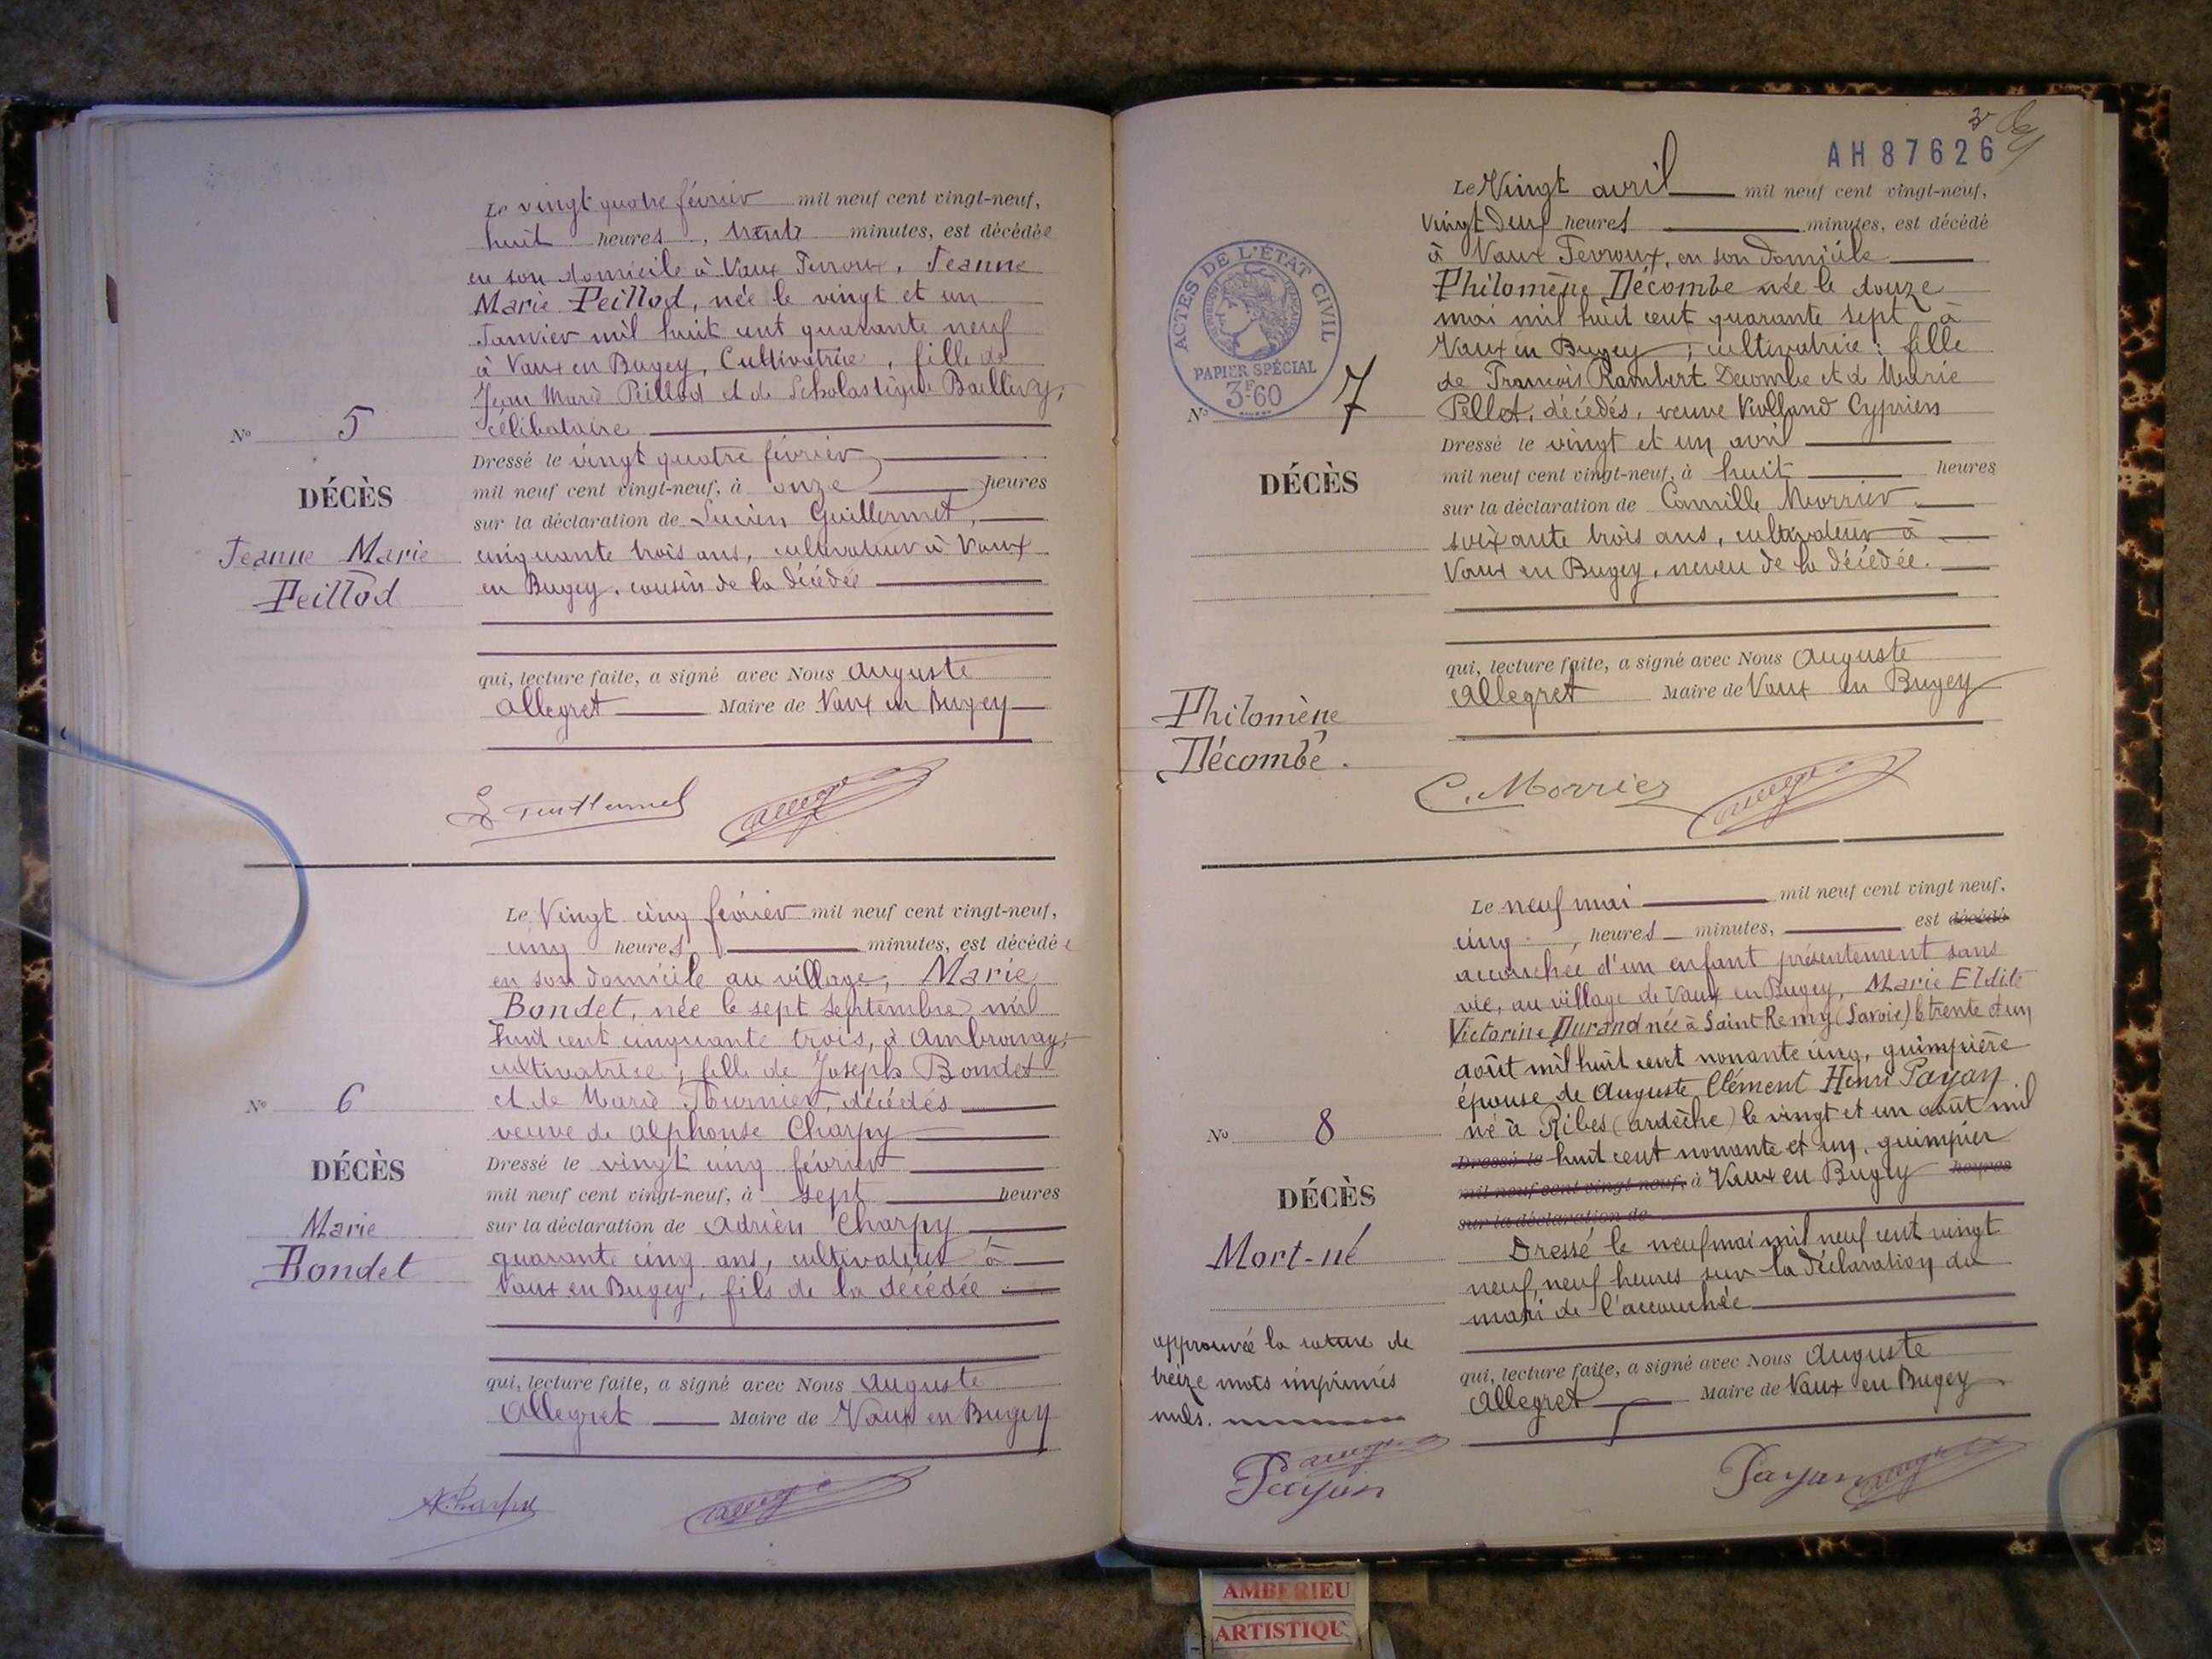 Le vingt quatre février mil neuf cent vingt-neuf,
huit heures, trente minutes, est décédée
en son domicile à Vaux Fevroux, Jeanne
Marie Peillod, née le vingt et un
Janvier mil huit cent quarante neuf
à Vaux en Bugey, Cultivatrice, fille de
Jean Marie Peillod et de Scholastique
célibataire
N° 5
Dressé le vingt quatre février
mil neuf cent vingt-neuf, à onze heures
DÉCÈS
sur la déclaration de Lucien Guillermet,
Jeanne Marie
Peillod
cinquante trois ans, cultivateur à Vaux
en Bugey, cousin de la décédée
qui, lecture faite, a signé avec Nous Auguste
Allegret Maire de Vaux en Bugey
Le Vingt cinq février mil neuf cent vingt-neuf,
cinq heures minutes, est décédée
en son domicile au village, Marie
Bondet, née le sept septembre mil
huit cent cinquante trois, à Ambronay,
cultivatrice, fille de Joseph Bondet
et de Marie Tournier, décédés
veuve de Alphonse Charpy
N° 6
Dressé le vingt cinq février
mil neuf cent vingt-neuf, à sept heures
DÉCÈS
sur la déclaration de Adrien Charpy
Marie
Bondet
quarante cinq ans, cultivateur à
Vaux en Bugey, fils de la décédée
qui, lecture faite, a signé avec Nous Auguste
Allegret Maire de Vaux en Bugey
AH87626
Le Vingt avril mil neuf cent vingt-neuf,
vingt deux heures minutes, est décédé
à Vaux Fevroux, en son domicile
Philomène Décombe née le douze
mai mil huit cent quarante sept à
Vaux en Bugey; cultivatrice; fille
de François Rambert Decombe et de Marie
Pellet, décédés, veuve Violland Cyprien
ACTES DE L'ÉTAT CIVIL
PAPIER SPÉCIAL
3F60
N° 7
DÉCÈS
Dressé le vingt et un avril
mil neuf cent vingt-neuf, à huit heures
sur la déclaration de Camille Morrier
soixante trois ans, cultivateur à
Vaux en Bugey, neveu de la décédée.
qui, lecture faite, a signé avec Nous Auguste
Allegret Maire de Vaux en Bugey
Philomène
Décombe.
C. Morrier
Le neuf mai mil neuf cent vingt neuf,
cinq, heures minutes, est décédé
accouchée d'un enfant présentement sans
vie, au village de Vaux en Bugey, Marie
Victorine Durand née à Saint Remy (Savoie) le trente et un
août mil huit cent nonante cinq, guimpière
épouse de Auguste Clément Henri Payan
né à Ribes (ardèche) le vingt et un août mil
Dressé le huit cent nonante et un, guimpier
mil neuf cent vingt-neuf, à Vaux en Bugey heures
sur la déclaration de
N° 8
DÉCÈS
Mort-né
Dressé le neuf mai mil neuf cent vingt
neuf, neuf heures sur la déclaration du
mari de l'accouchée
approuvée la rature de
treize mots imprimés
nuls.
qui, lecture faite, a signé avec Nous Auguste
Allegret Maire de Vaux en Bugey
Payan
Payan
AMBERIEU
ARTISTIQU